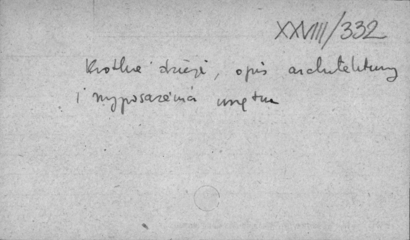 XXVIII/332
Krótkie dzieje, opis architektury
i wyposażenia wnętrz